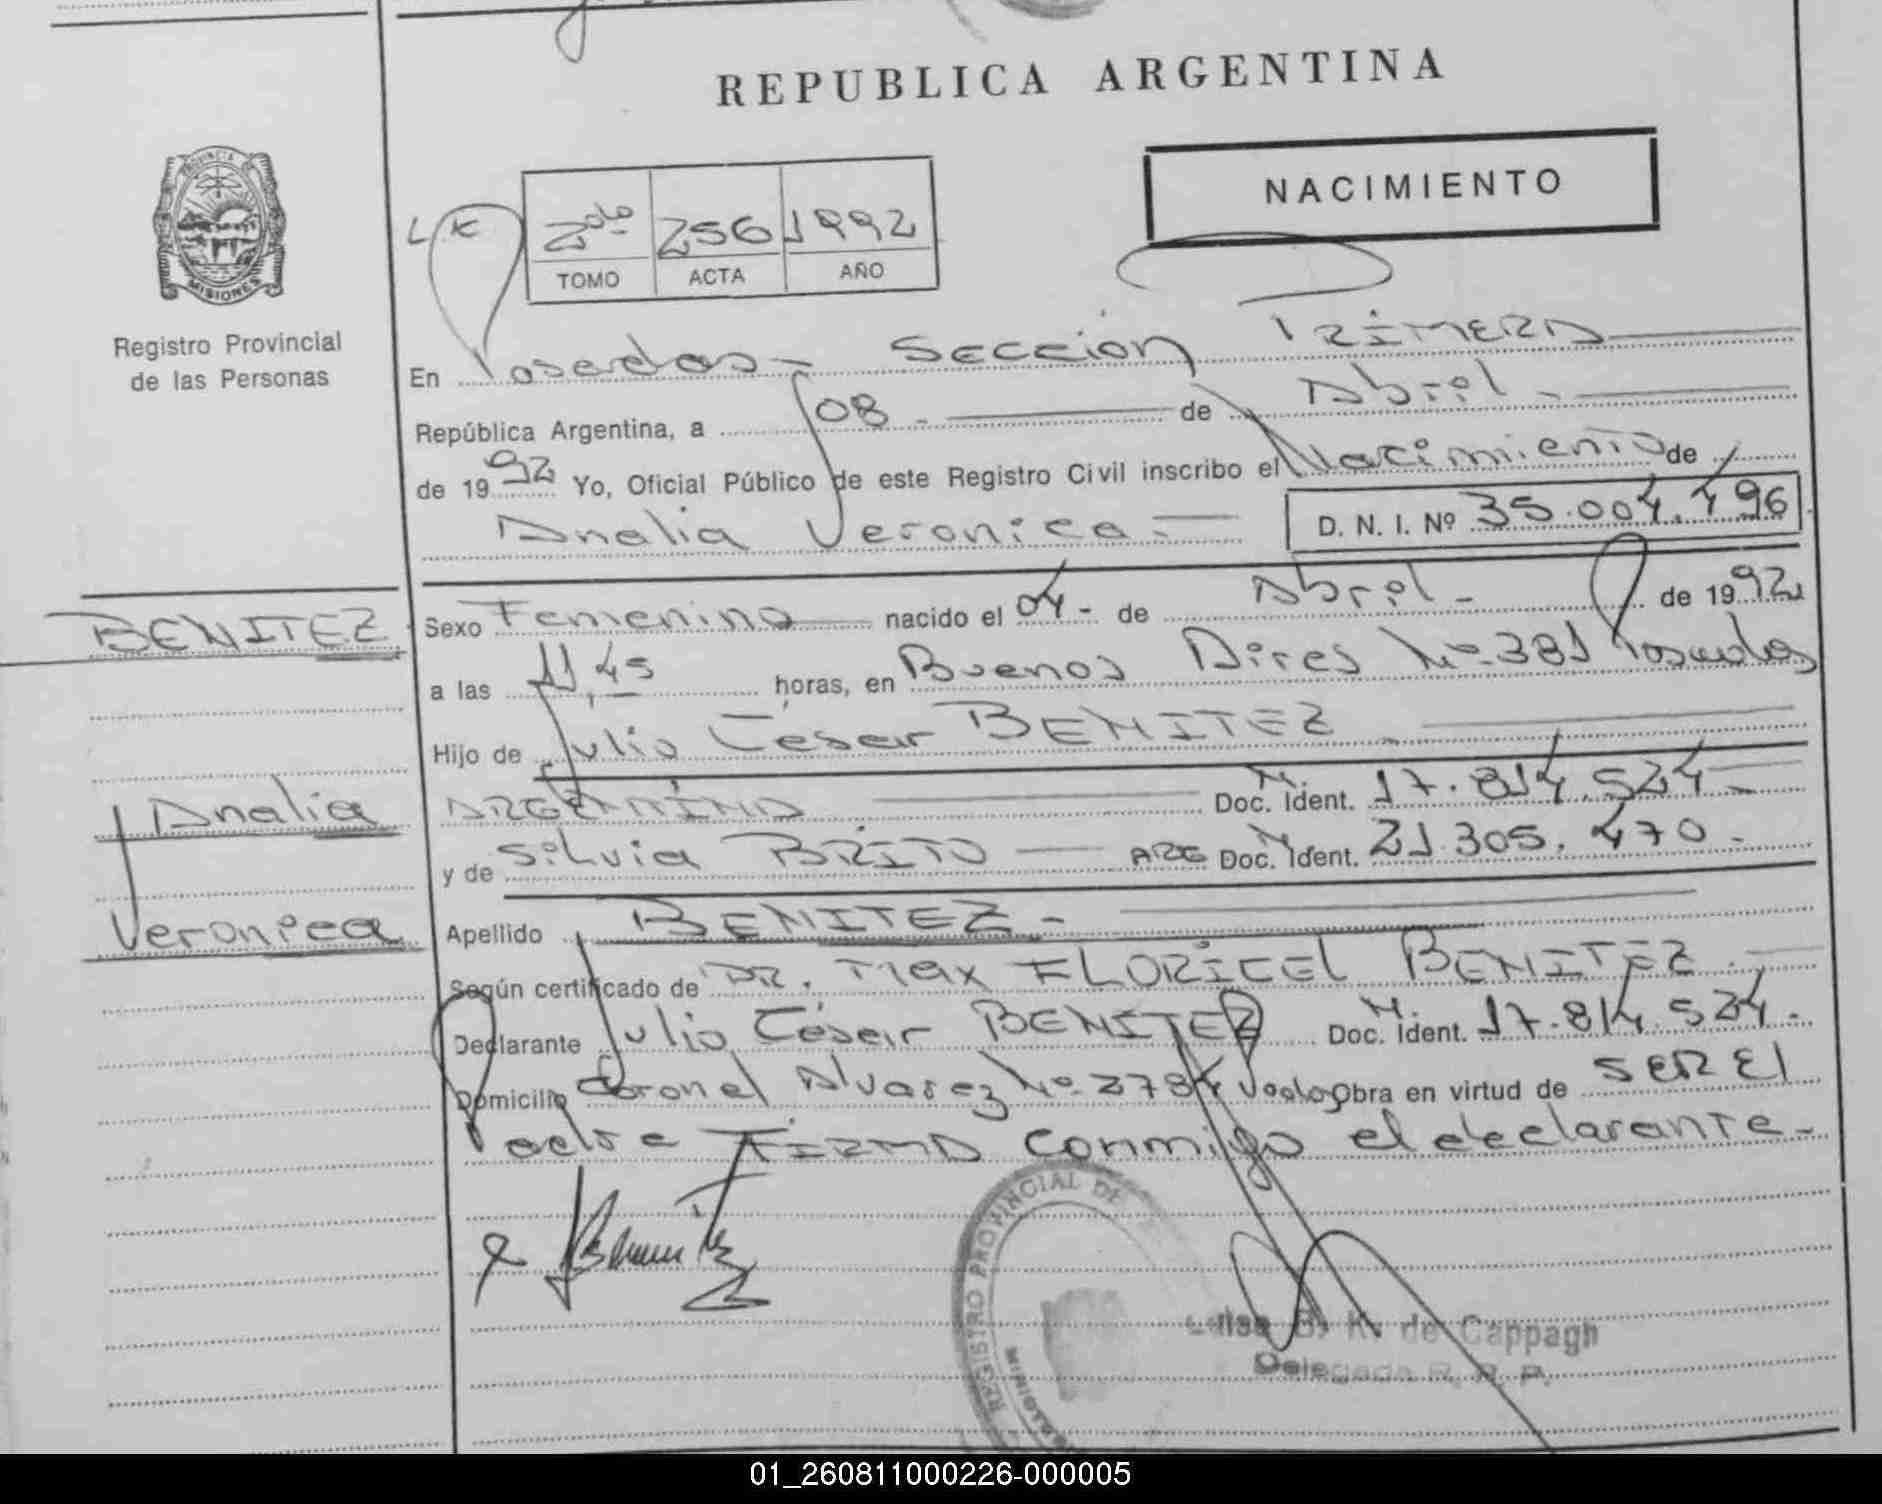 REPUBLICA ARGENTINA
NACIMIENTO
PROVINCIA
MISIONES
Registro Provincial
de las Personas
2do 256 1992
TOMO ACTA AÑO
En Posadas - Sección PRIMERA
República Argentina, a 08 - de Abril -
de 1992 Yo, Oficial Público de este Registro Civil inscribo el Nacimiento de
Analia Veronica - D. N. I. Nº 35.004.496
BENITEZ
Analia
Veronica
Sexo Femenino nacido el 04 - de Abril - de 1992
a las 11,45 horas, en Buenos Aires Nº 381 Posadas
Hijo de Julio César BENITEZ -
ARGENTINO Doc. Ident. M. 17.814.524 -
y de Silvia BRITO ARG Doc. Ident. 21.305.470 -
Apellido BENITEZ -
Según certificado de DR. Max FLORICEL BENITEZ -
Declarante Julio César BENITEZ Doc. Ident. M. 17.814.524 -
Domicilio Coronel Alvarez Nº 2784 Obra en virtud de SER El
Padre FIRMA conmigo el declarante -
REGISTRO PROVINCIAL DE
Luisa B. K. de Cappagh
Delegada R. P. P.
01_260811000226-000005